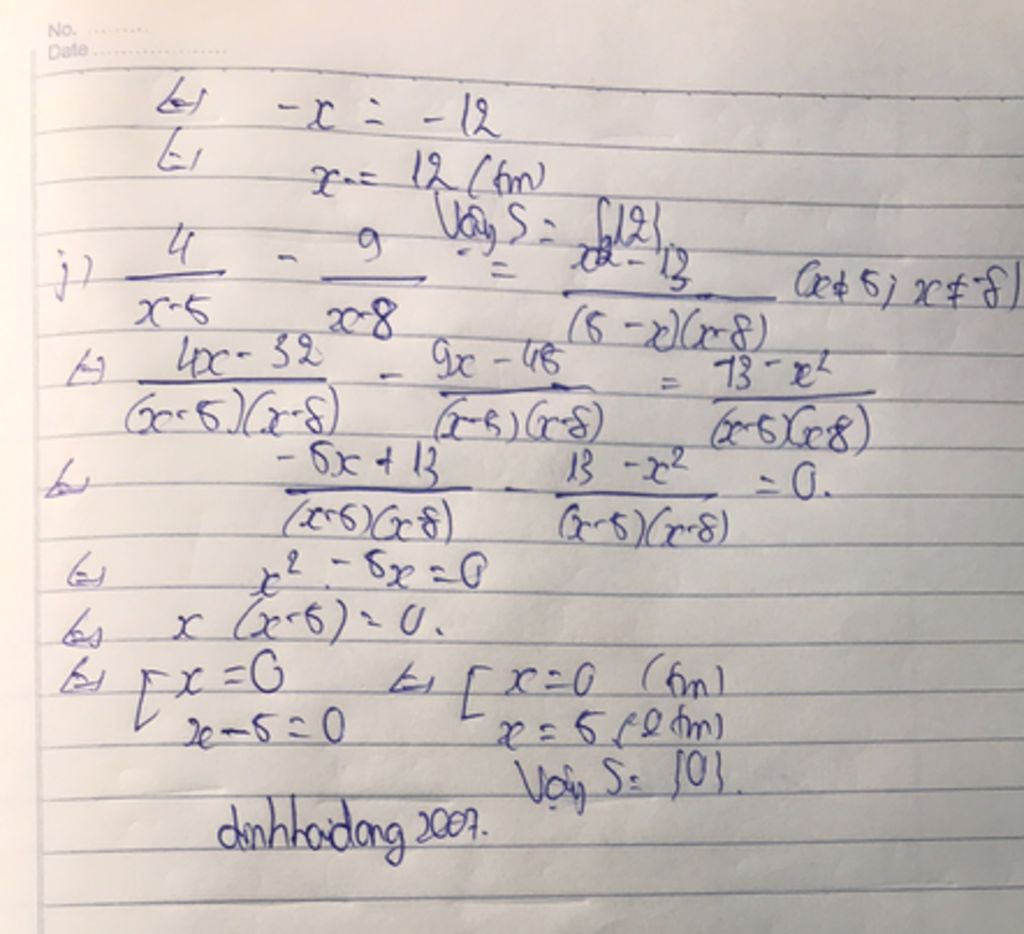 No. ..........
Date ....................
⇔ -x = -12
⇔ x = 12 (tm)
Vậy S = {12}
j) 4/(x-5) - 9/(x-8) = (x² - 13)/((5-x)(x-8)) (x ≠ 5; x ≠ -8)
⇔ (4x - 32)/((x-5)(x-8)) - (9x - 45)/((x-5)(x-8)) = (13 - x²)/((x-5)(x-8))
⇔ (-5x + 13)/((x-5)(x-8)) - (13 - x²)/((x-5)(x-8)) = 0.
⇔ x² - 5x = 0
⇔ x (x-5) = 0.
⇔ [ x = 0 ⇔ [ x = 0 (tm)
x - 5 = 0 x = 5 (l tm)
Vậy S = {0}.
dinhhaidong 2007.